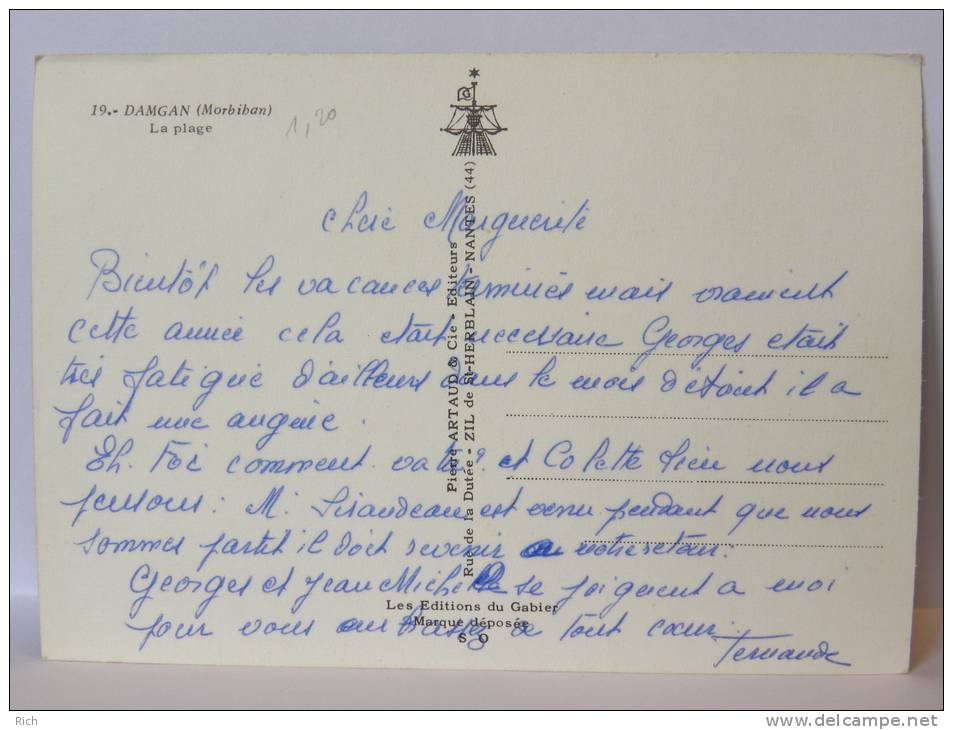 19.- DAMGAN (Morbihan)
La plage
1,20
Pierre ARTAUD & Cie - Editeurs
Rue de la Dutée - ZIL de St-HERBLAIN - NANTES (44)
Chère Marguerite
Bientôt les vacances terminées mais vraiment
cette année cela était necessaire Georges etait
très fatigué d'ailleurs dans le mois d'Aout il a
fait une angine.
Eh. Toi comment vas tu? et Colette
pensons: M. est venu pendant que nous
sommes partit il doit revenir a notre retour.
Georges et Jean Michel se joignent a moi
pour vous embrasser de tout coeur.
Fernande
Les Editions du Gabier
Marque déposée
S O
Rich
www.delcampe.net